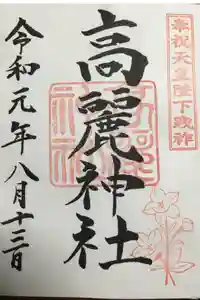 奉祝天皇陛下御即位
高麗神社
令和元年八月十三日